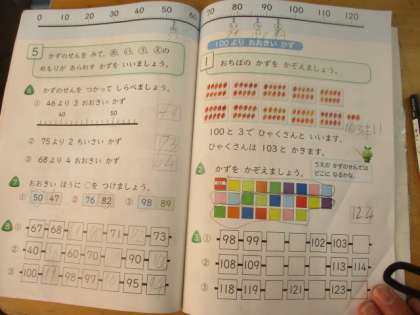 0 10 20 30 40 50 60
5 かずのせんを みて、あ、い、う、えの
めもりが あらわす かずを いいましょう。
かずのせんを つかって しらべましょう。
① 46より 3 おおきい かず
40 50
② 75より 2 ちいさい かず
73
③ 68より 4 おおきい かず
おおきい ほうに ○を つけましょう。
① 50 47 ② 76 82 ③ 98 89
① 67 68 71 73
② 40 90
③ 100 98 97 95
70 80 90 100 110 120
100より おおきい かず
1 おちばの かずを かぞえましょう。
100と 3で ひゃくさんと いいます。
ひゃくさんは 103と かきます。
かずを かぞえましょう。
うえの かずのせんでは
どこに なるかな。
124
① 98 99 102 103
② 108 109 113 114
③ 118 119 121 123